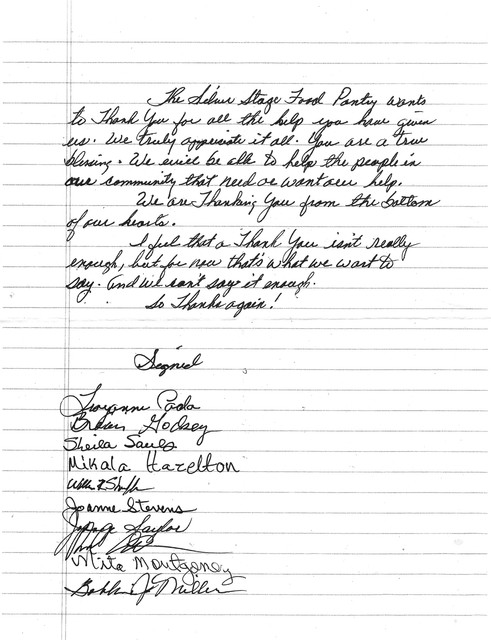 The Silver Stage Food Pantry wants
to Thank You for all the help you have given
us. We truly appreciate it all. You are a true
blessing. We will be able to help the people in
our community that need or want our help.
We are Thanking You from the bottom
of our hearts.
I feel that a Thank You isn't really
enough, but for now that's what we want to
say. And we can't say it enough.
So Thanks again!
Signed
Godsey
Sheila Sauls
Mikala Hazelton
Joanne Stevens
Saylor
Nita Montgomery
Bobbie J. Miller